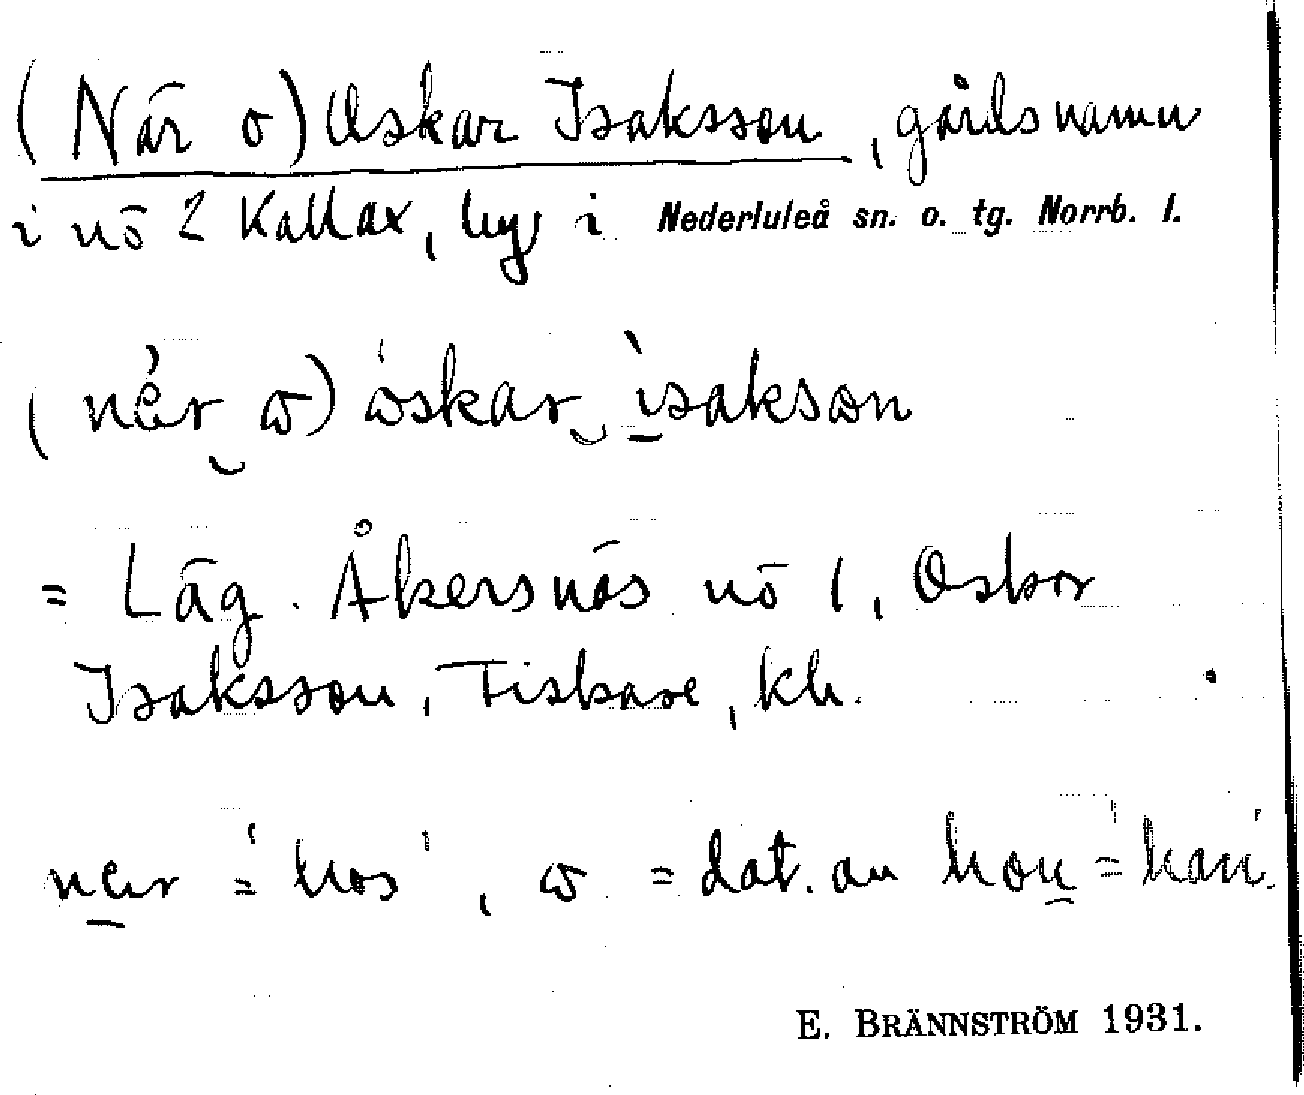 (När o) Oskar Isaksson, gårdsnamn
i nō 2 Kallax, by i Nederluleå sn. o. tg. Norrb. l.
(nér ω) ωskar ìsaksωn
= Läg. Åkersnäs nō 1, Oskar
Isaksson, Fiskare, kh.
ner = 'hos', ω = dat. av hon = 'han'.
E. BRÄNNSTRÖM 1931.